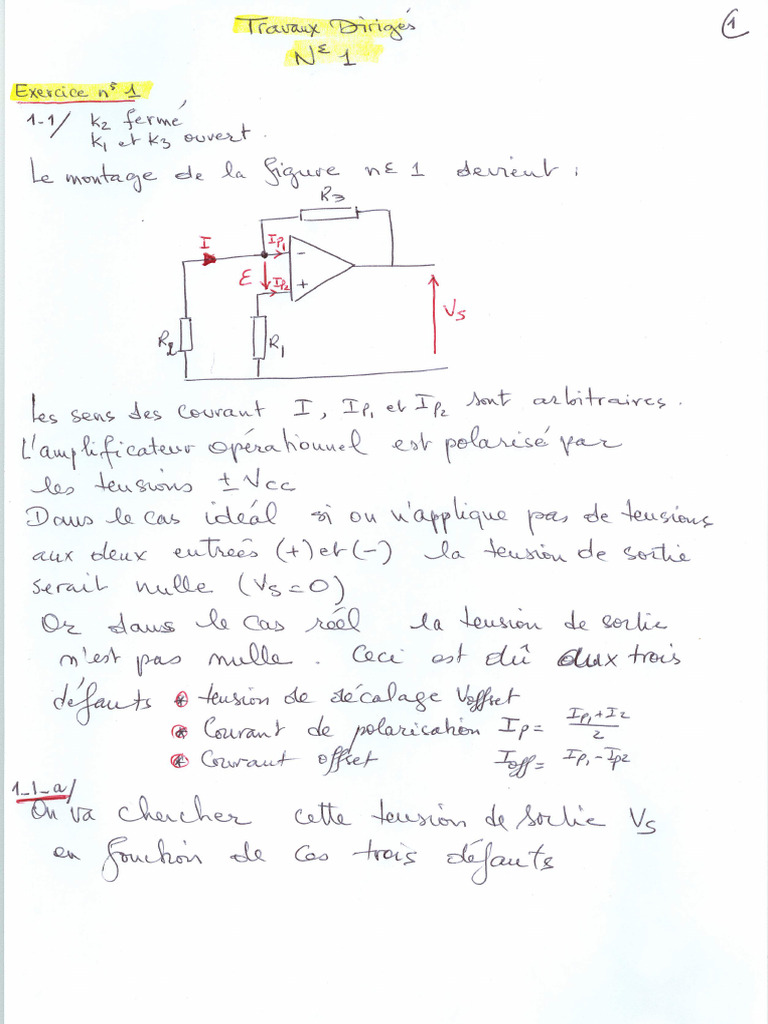 1
Travaux Dirigés
N° 1
Exercice n° 1
1-1/ k2 fermé
k1 et k3 ouvert.
Le montage de la figure n° 1 devient :
R3
I
Ip1
-
ε
Ip2
+
Vs
R2
R1
Les sens des courant I, Ip1 et Ip2 sont arbitraires.
L'amplificateur opérationnel est polarisé par
les tensions ±Vcc
Dans le cas idéal si on n'applique pas de tensions
aux deux entrées (+) et (-) la tension de sortie
serait nulle (Vs = 0)
Or dans le cas réel la tension de sortie
n'est pas nulle. Ceci est dû aux trois
défauts * tension de décalage Voffset
* Courant de polarisation Ip = (Ip1 + I2)/2
* Courant offset Ioff = Ip1 - Ip2
1-1-a/
On va chercher cette tension de sortie Vs
en fonction de ces trois défauts